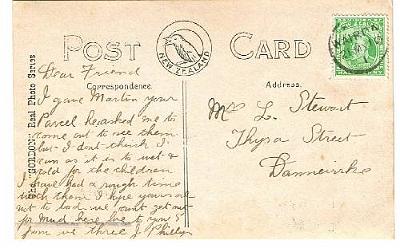 POST CARD
NEW ZEALAND
"GORDON" Real Photo Series
Correspondence.
Address.
Dear Friend
I gave Martin your
Parcel he asked me to
come out to see them
but I dont think I
can as it is to wet &
cold for the children
I have had a rough time
with them I hope yours are
not to bad we cant get out
for much here love to you
from us three J Phillips
Mrs L. Stewart
Thyra Street
Dannevirke